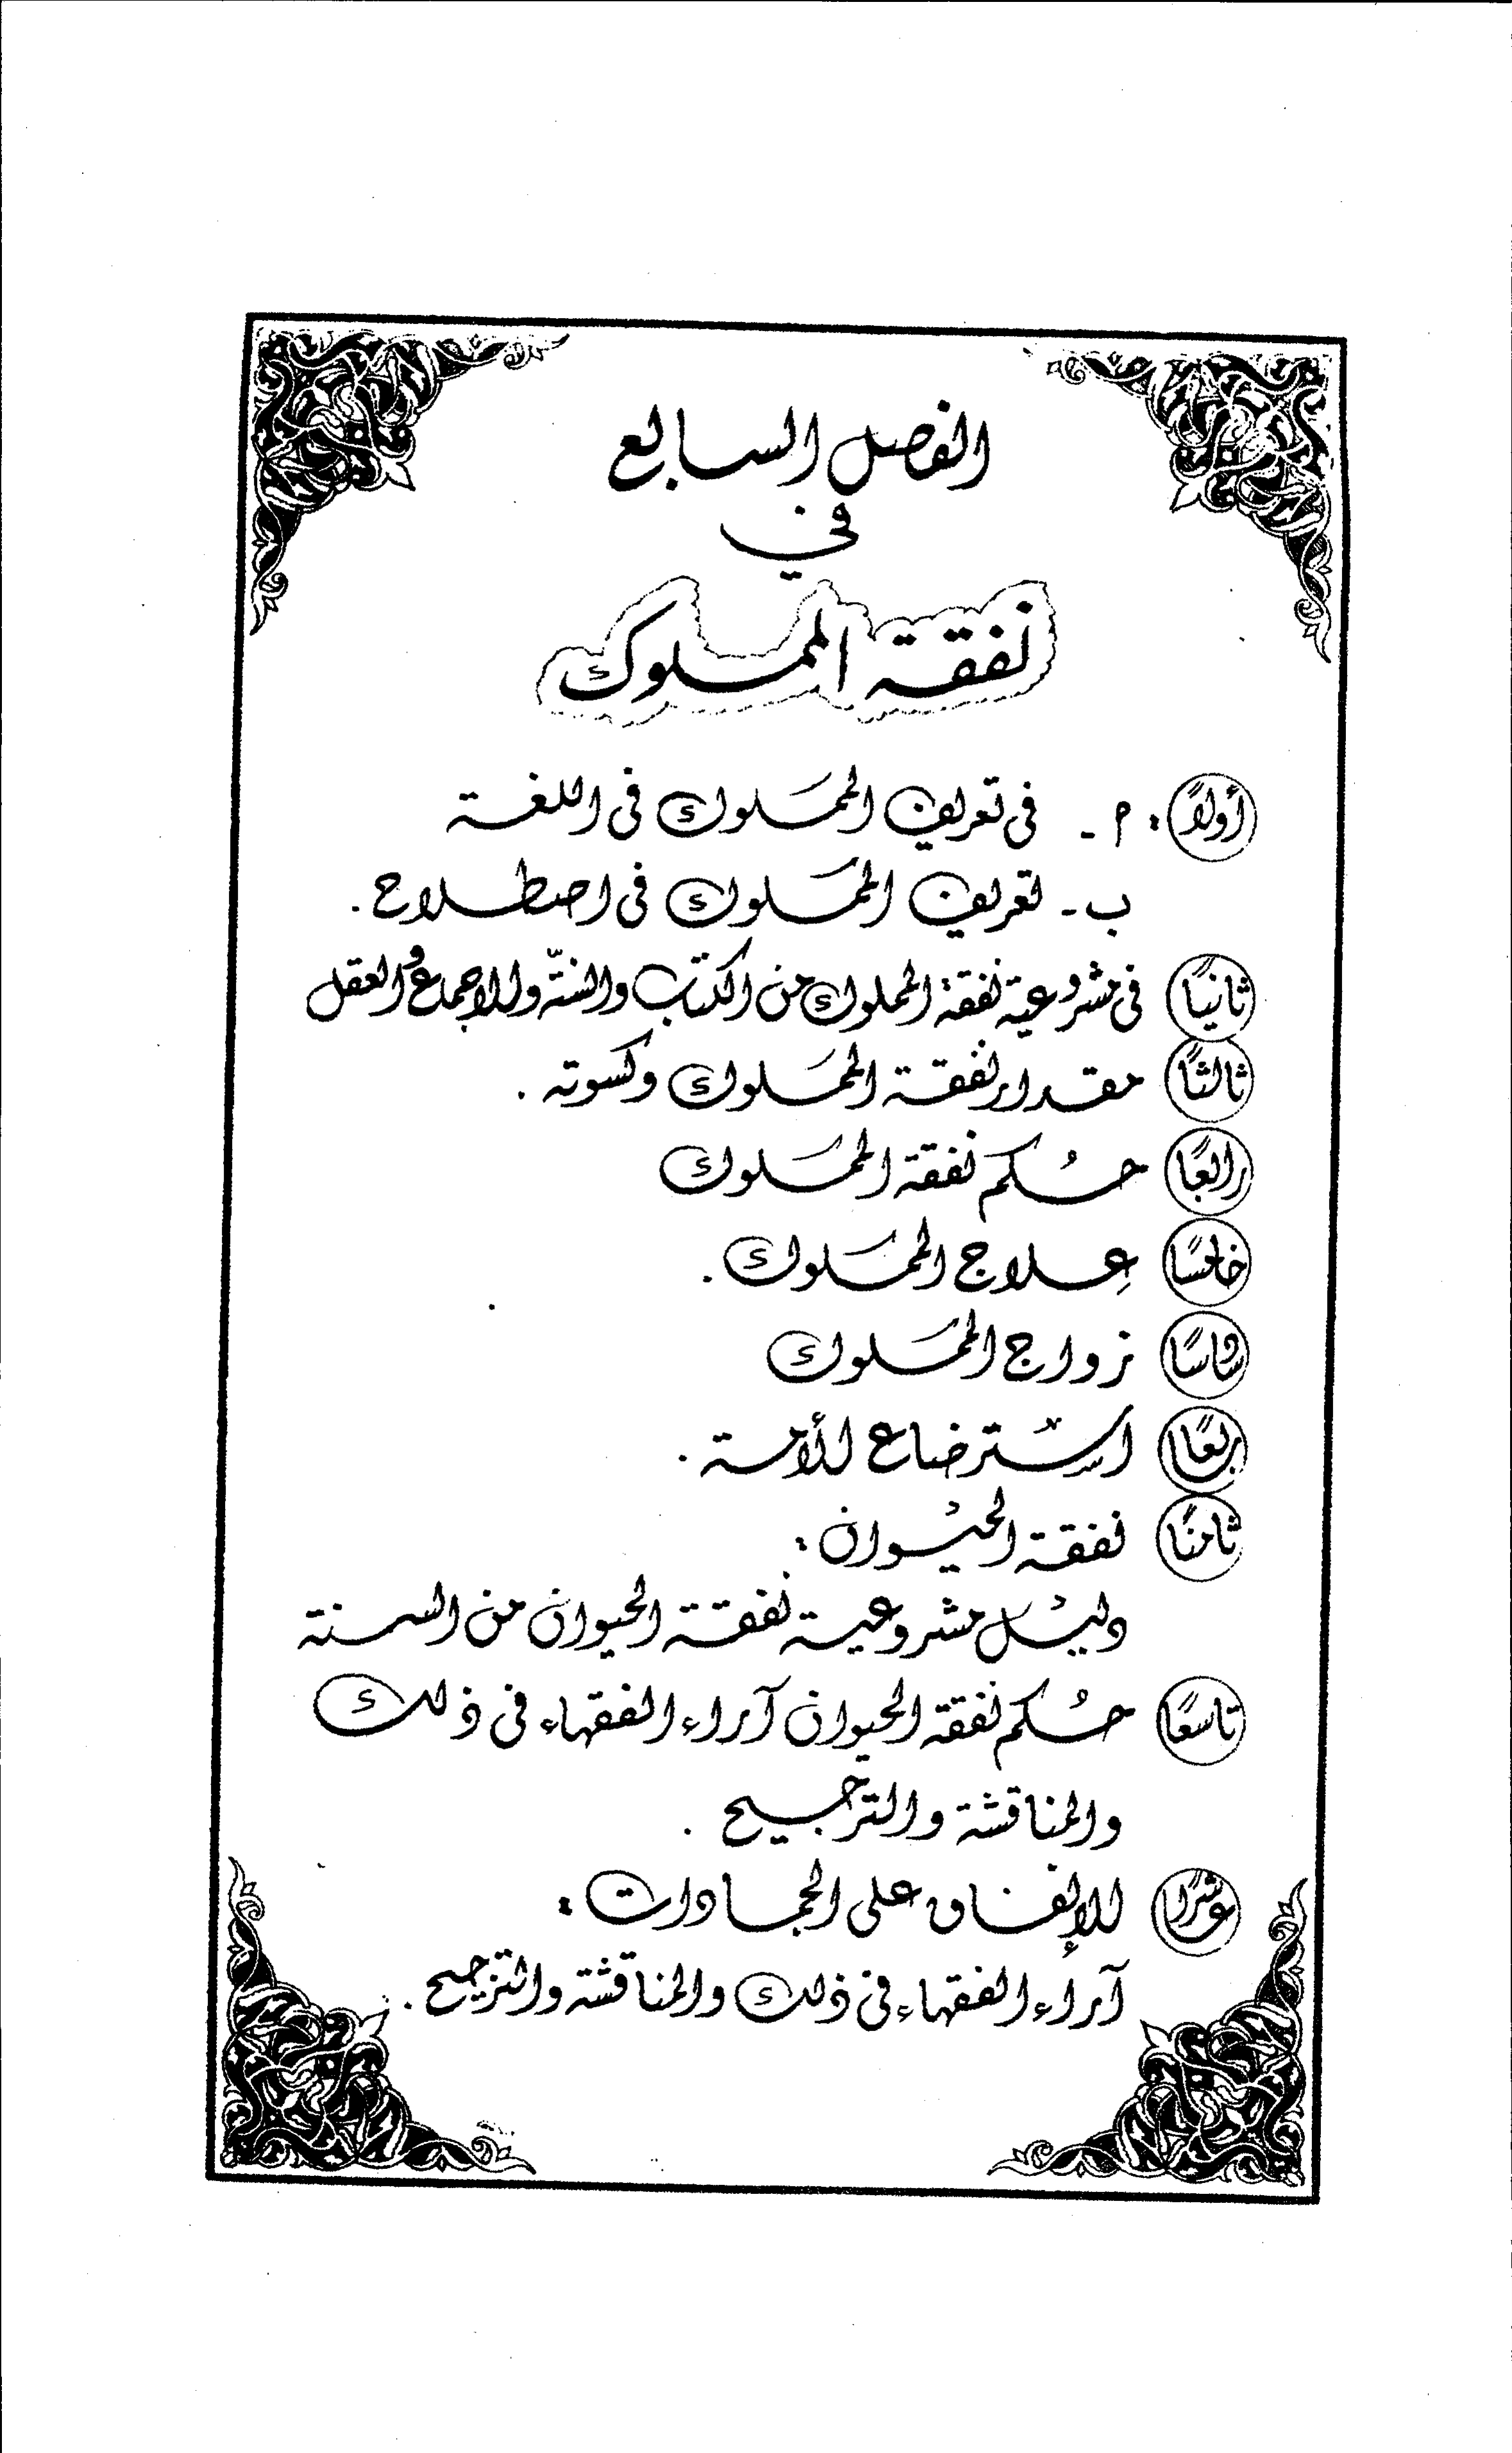 الفصل السابع
في
نفقة المملوك
أولاً: أ - فى تعريف المملوك فى اللغة
ب - تعريف المملوك فى اصطلاح.
ثانيًا فى مشروعية نفقة المملوك من الكتاب والسنّة والاجماع والعقل
ثالثًا مقدار نفقة المملوك وكسوته.
رابعًا حُكم نفقة المملوك
خامسًا عِلاج المملوك.
سادسًا زواج المملوك
سابعًا استرضاع الأمة.
ثامنًا نفقة الحيوان:
دليل مشروعية نفقة الحيوان من السنة
تاسعًا حُكم نفقة الحيوان آراء الفقهاء فى ذلك
والمناقشة والترجيح.
عاشرًا الإنفاق على الجمادات:
آراء الفقهاء فى ذلك والمناقشة والترجيح.